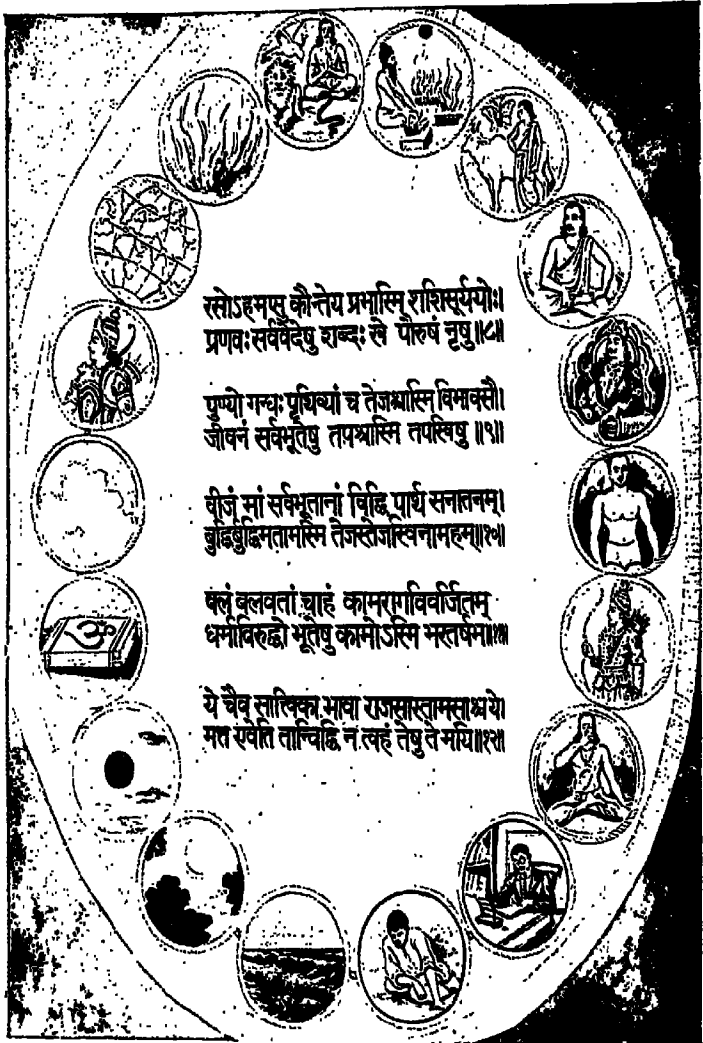 रसोऽहमप्सु कौन्तेय प्रभास्मि शशिसूर्ययोः।
प्रणवः सर्ववेदेषु शब्दः खे पौरुषं नृषु॥८॥
पुण्यो गन्धः पृथिव्यां च तेजश्चास्मि विभावसौ।
जीवनं सर्वभूतेषु तपश्चास्मि तपस्विषु॥९॥
वीजं मां सर्वभूतानां विद्धि पार्थ सनातनम्।
बुद्धिर्बुद्धिमतामस्मि तेजस्तेजस्विनामहम्॥१०॥
बलं बलवतां चाहं कामरागविवर्जितम्
धर्माविरुद्धो भूतेषु कामोऽस्मि भरतर्षभ॥११॥
ये चैव सात्त्विका भावा राजसास्तामसाश्च ये।
मत्त एवेति तान्विद्धि न त्वहं तेषु ते मयि॥१२॥
ॐ